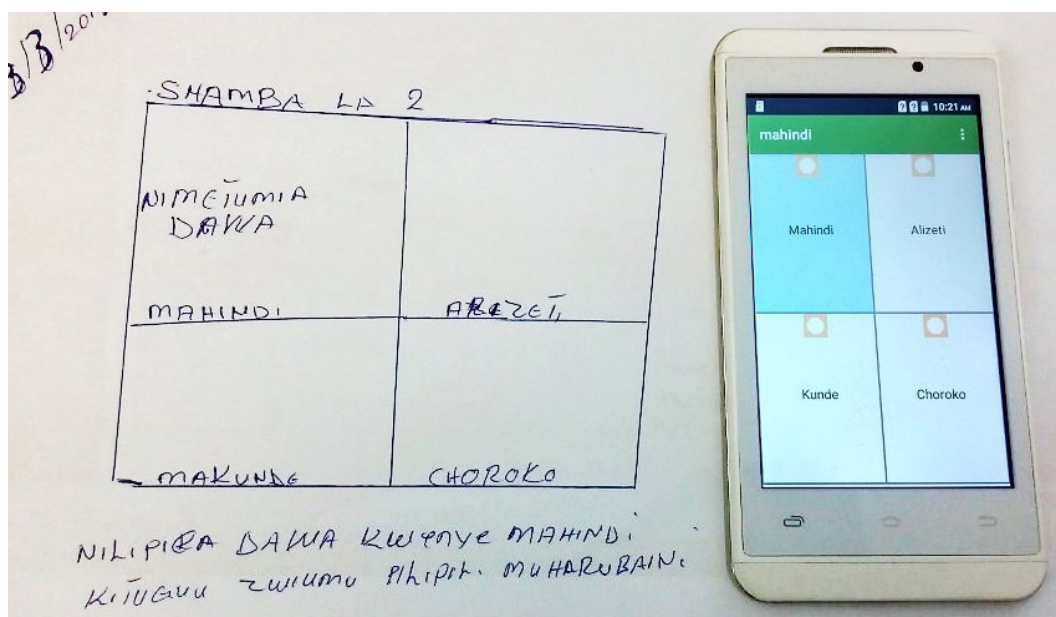 SHAMBA LA 2
NIMETUMIA
DAWA
MAHINDI
MAKUNDE
CHOROKO
DAWA KWENYE MAHINDI
KITUGUU PILIPILI MUHARUBAINI
10:21 AM
mahindi
Mahindi
Alizeti
Kunde
Choroko